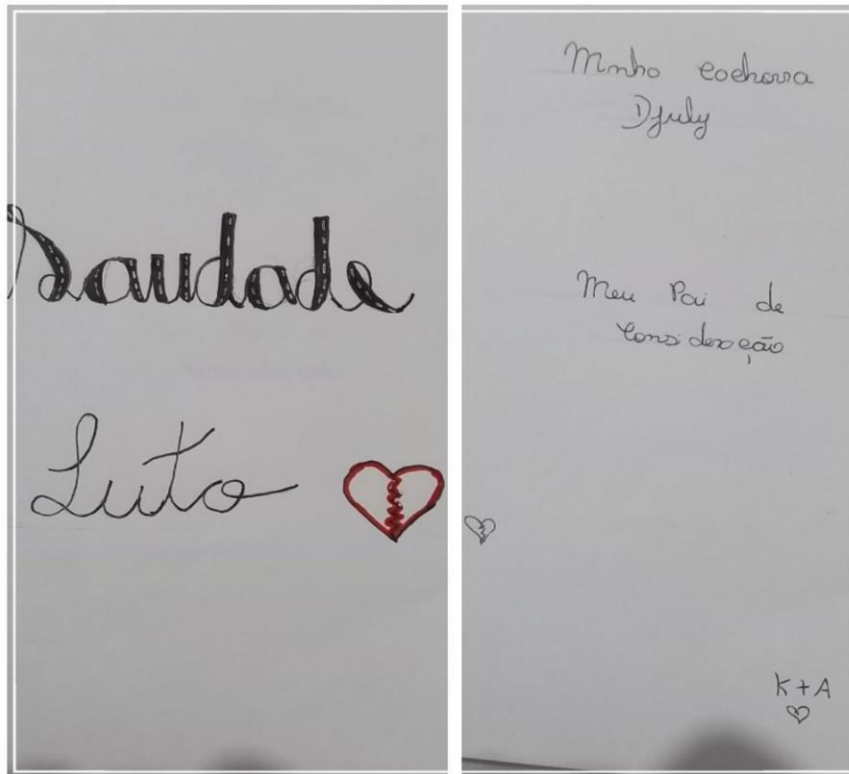 Saudade
Luto
Minha cachorra
Djuly
Meu Pai de
Consideração
K + A